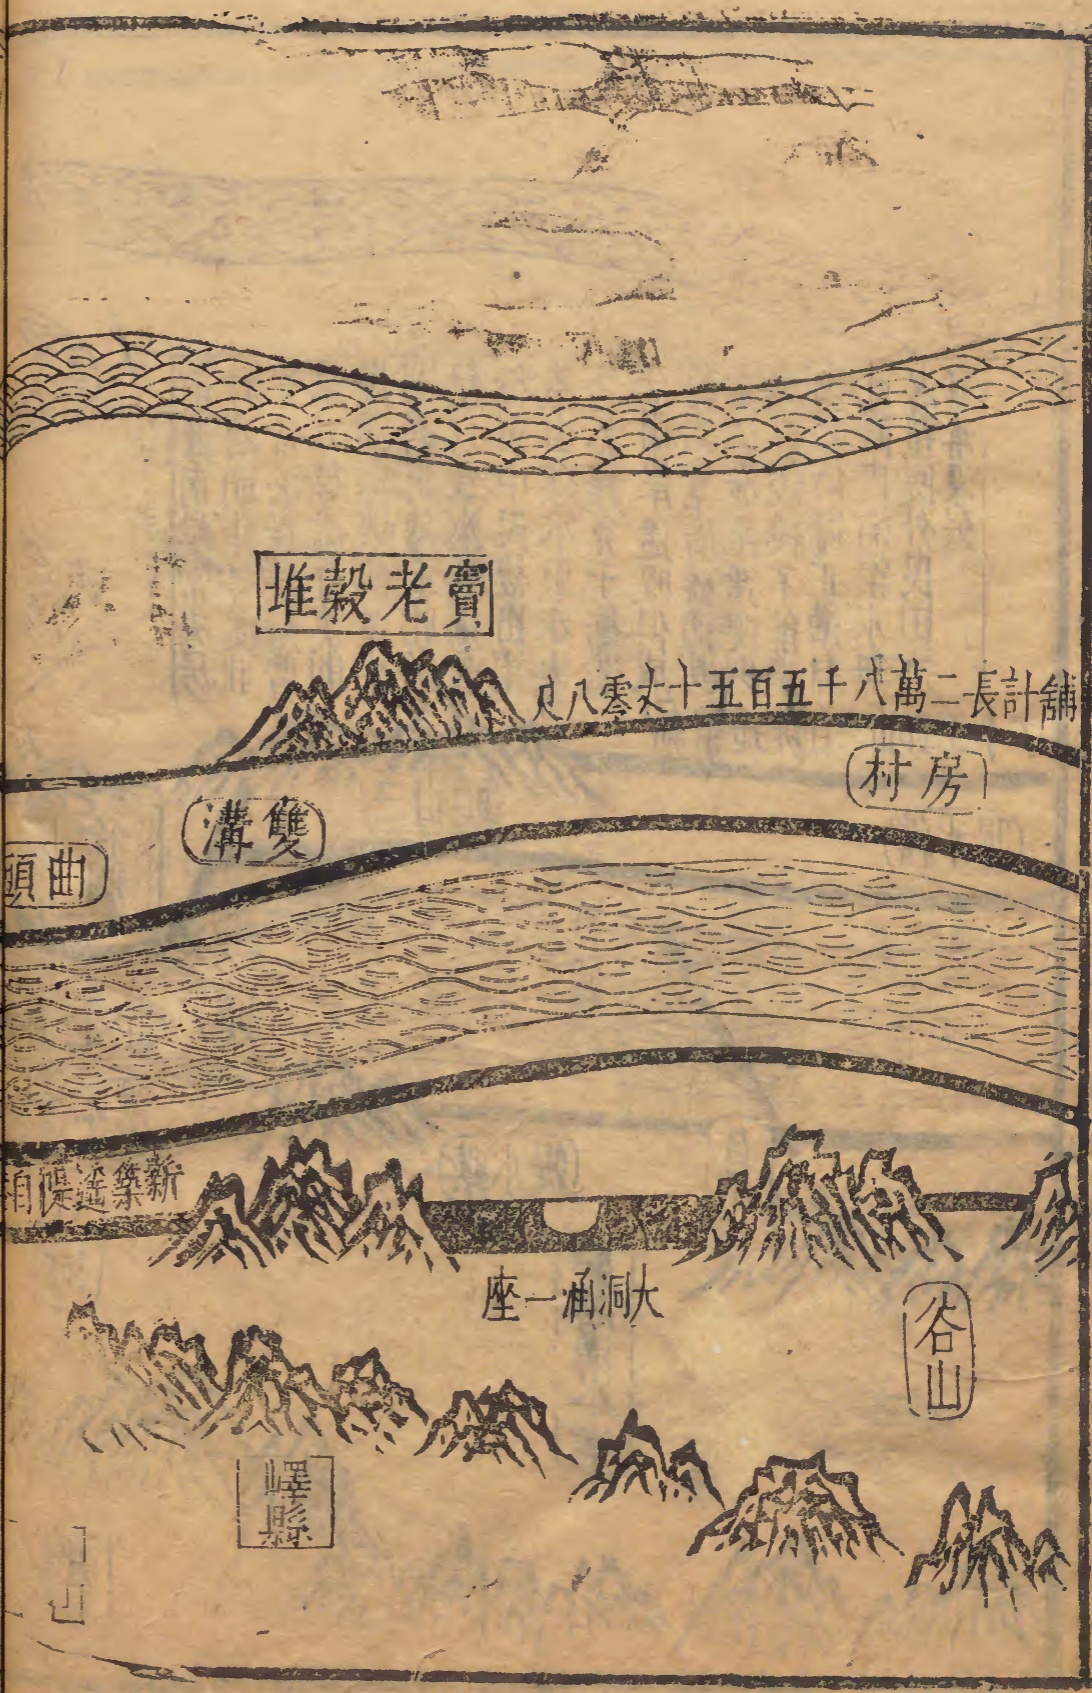 竇老穀堆
舖計長二萬八千五百五十丈零八尺
房村
雙溝
曲頭
新築遙堤
大洞涵一座
谷山
嶧縣
山